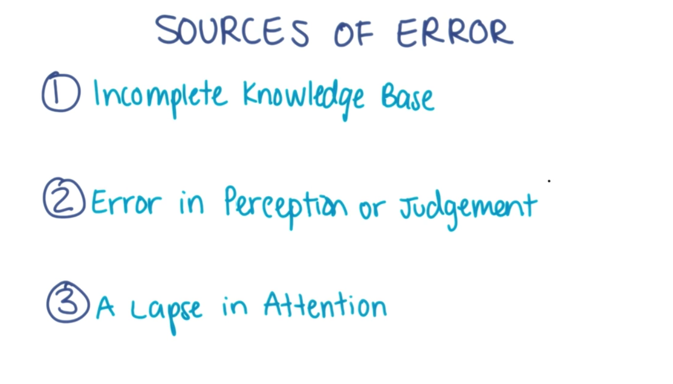 SOURCES OF ERROR
① Incomplete Knowledge Base
② Error in Perception or Judgement
③ A Lapse in Attention